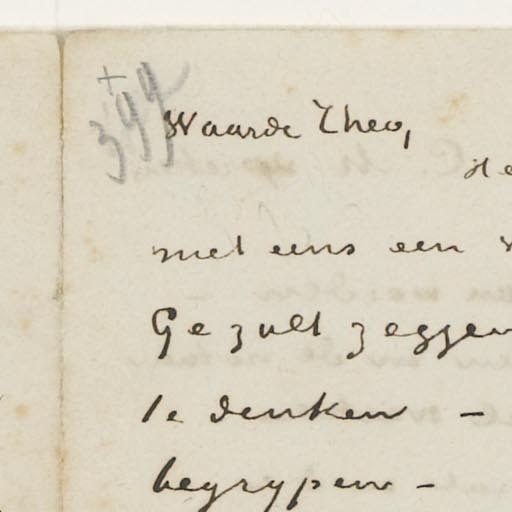 399
Waarde Theo,
He
met eens een
Ge zult zeggen
te denken –
begrypen –